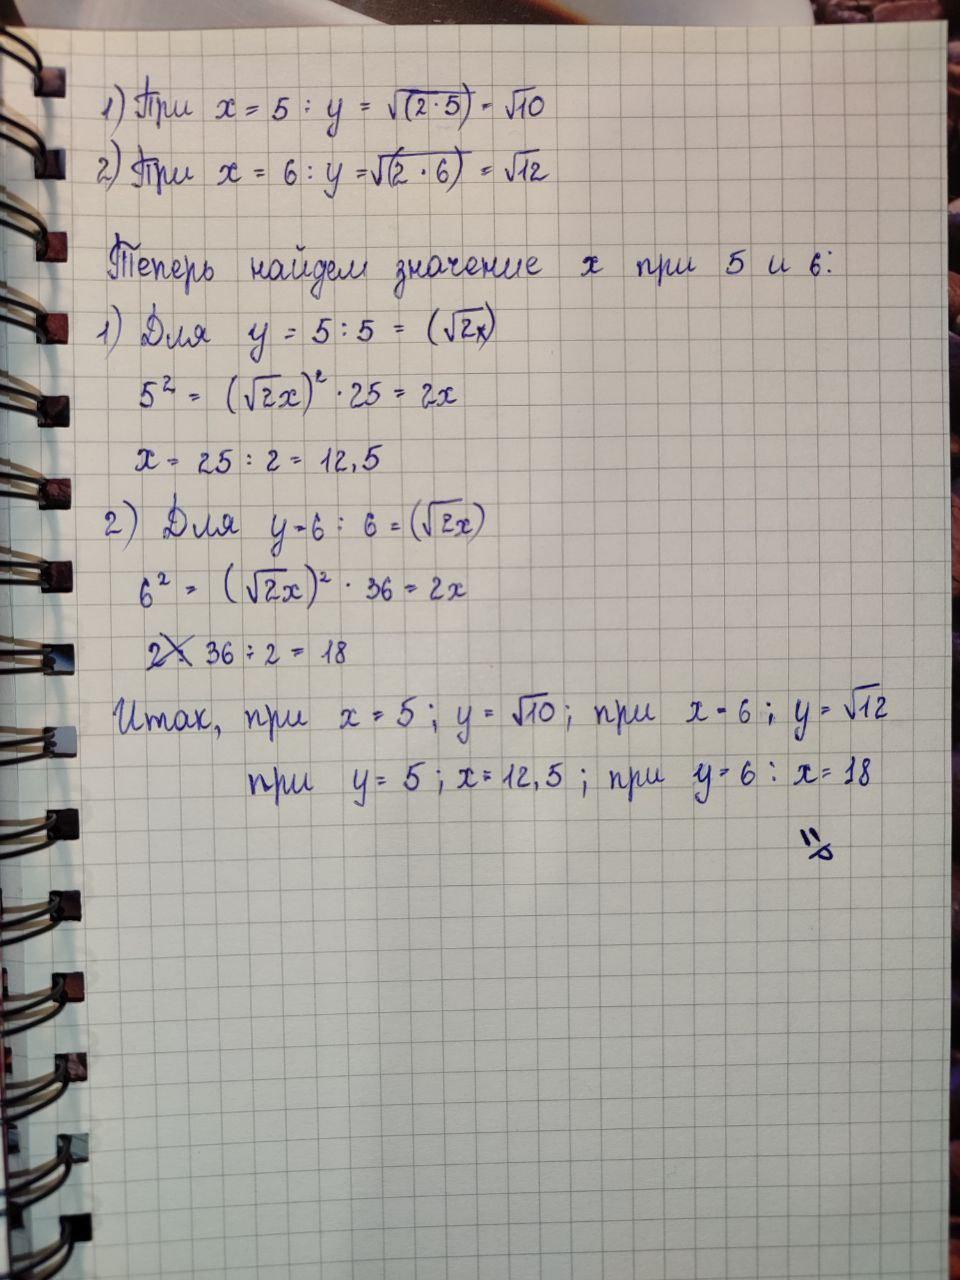 1) При x = 5 : y = √(2·5) = √10
2) При x = 6 : y = √(2·6) = √12
Теперь найдем значение x при 5 и 6:
1) Для y = 5 : 5 = (√2x)
5² = (√2x)² · 25 = 2x
x = 25 : 2 = 12,5
2) Для y = 6 : 6 = (√2x)
6² = (√2x)² · 36 = 2x
36 : 2 = 18
Итак, при x = 5 ; y = √10 ; при x = 6 ; y = √12
при y = 5 ; x = 12,5 ; при y = 6 : x = 18